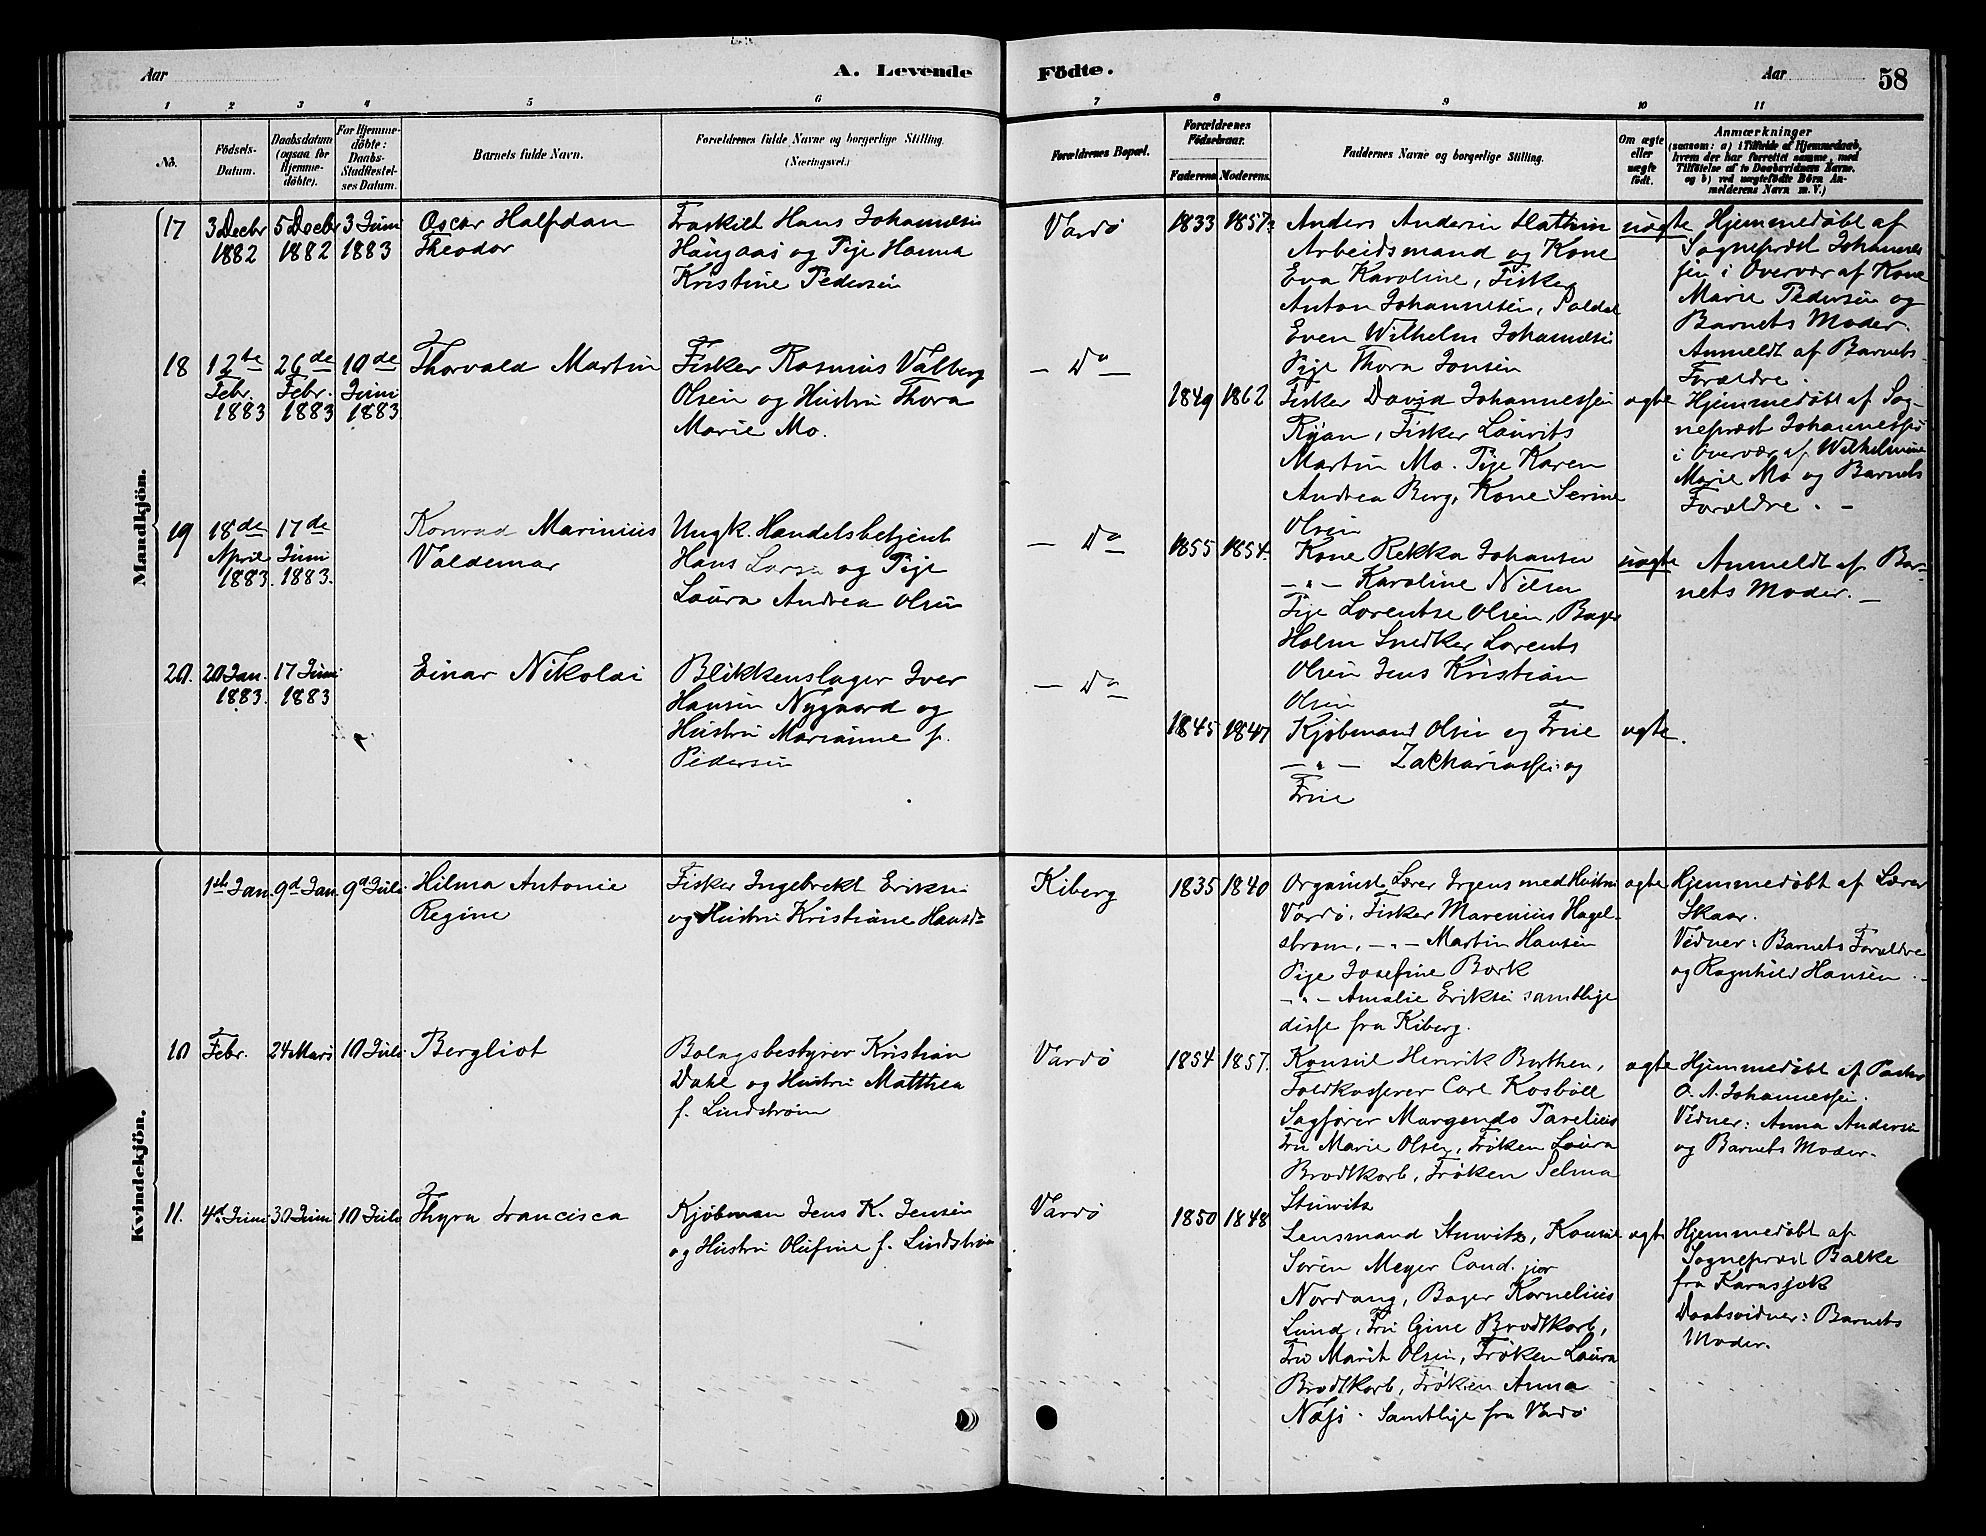 Aar
A. Levende
Födte.
Aar
58
1 2 3 4 5 6 7 8 9 10 11
No.
Födsels-
Datum.
Daabsdatum
(ogsaa for
Hjemme-
döbte).
For Hjemme-
döbte:
Daabs-
Stadfæstel-
ses Datum.
Barnets fulde Navn.
Forældrenes fulde Navne og borgerlige Stilling.
(Næringsvei.)
Forældrenes Bopæl.
Forældrenes
Födselsaar.
Faderens. Moderens.
Faddernes Navne og borgerlige Stilling.
Om ægte
eller
uægte
födt.
Anmærkninger
(saasom: a) i Tilfælde af Hjemmedaab,
hvem der har forrettet samme, med
Tilföielse af to Daabsvidners Navne,
og b) ved uægtefödte Börn An-
melderens Navn m. V.)
Mandkjön.
17
3 Decbr
1882
5 Decbr
1882
3 Juni
1883
Oscar Halfdan
Theodor
Fraskilt Hans Johannesen
Haugaas og Pige Hanna
Kristine Pedersen
Vardø
1833
1857
Anders Andersen
Arbeidsmand og Kone
Eva Karoline, Fisker
Anton Johannesen, Soldat
Even Wilhelm Johannesen
Pige Thora Jonsen
uægte
Hjemmedøbt af
Sognepræst Johannes
sen i Overvær af Kone
Marie Pedersen og
Barnets Moder.
Anmeldt af Barnets
Forældre.
18
12te
Febr.
1883
26de
Febr.
1883
10de
Juni
1883
Thorvald Martin
Fisker Rasmus Valberg
Olsen og Hustru Thora
Marie Mo.
— Do —
1849
1862
Fisker David Johannessen
Ryan, Fisker Laurits
Martin Mo. Pige Karen
Andrea Berg, Kone Serine
Olsen
ægte
Hjemmedøbt af Sog-
nepræst Johannessen
i Overvær af Wilhelmine
Marie Mo og Barnets
Forældre. —
19
18de
April
1883.
17de
Juni
1883.
Konrad Marinius
Valdemar
Ungk. Handelsbetjent
Hans Larsen og Pige
Laura Andrea Olsen
— Do —
1855
1854.
Kone Rekka Johansen
— " — Karoline Nilsen
Pige Lorentse Olsen, Bager
Holm Snedker Lorents
Olsen Jens Kristian
Olsen
uægte
Anmeldt af Bar-
nets Moder. —
20.
20 Jan.
1883.
17 Juni
1883
Einar Nikolai
Blikkenslager Iver
Hansen Nygaard og
Hustru Marianne f.
Pedersen
— Do —
1845
1847
Kjøbmand Olsen og Frue
— " — Zachariassen og
Frue
ægte.
Kvindekjön.
1ste Jan
9d Jan
9d Juli
Hilma Antonie
Regine
Fisker Ingebrekt Eriksen
og Hustru Kristiane Hansd.
Kiberg
1835
1840
Organist Lærer Irgens med Hustru
Vardø, Fisker Marenius Hagel-
strøm, — " — Martin Hansen
Pige Josefine Bork
— " — Amalie Eriksen samtlige
disse fra Kiberg.
ægte
Hjemmedøbt af Lærer
Skaar.
Vidner: Barnets Forældre
og Ragnhild Hansen.
10
Febr.
24 Mars
10 Juli
Bergliot
Bolagsbestyrer Kristian
Dahl og Hustru Matthea
f. Lindstrøm
Vardø
1854
1857.
Konsul Henrik Buthen,
Toldkasserer Carl Kosbøll
Sagfører Margendo Parelius
Fru Marie Olsen, Frøken Laura
Brodtkorb, Frøken Selma
Stuwitz
ægte
Hjemmedøbt af Pastor
O. A. Johannessen.
Vidner: Anna Andersen
og Barnets Moder.
11.
4de Juni
30 Juni
10 Juli
Thyra Francisca
Kjøbman Jens K. Jensen
og Hustru Olufine f. Lindstrøm
Vardø
1850
1848
Lensmand Stuwitz, Konsul
Søren Meyer Cand. jur
Nordang, Bager Kornelius
Lund, Fru Gine Brodtkorb,
Fru Marit Olsen, Frøken Laura
Brodtkorb, Frøken Anna
Næss. Samtlige fra Vardø
ægte
Hjemmedøbt af
Sognepræst Balke
fra Karasjok
Daabsvidner: Barnets
Moder.